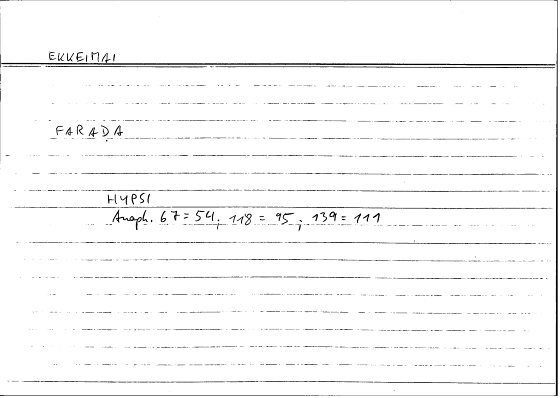 EKKEIMAI
FARADA
HYPSI
Anaph. 67 = 54; 118 = 95; 139 = 111